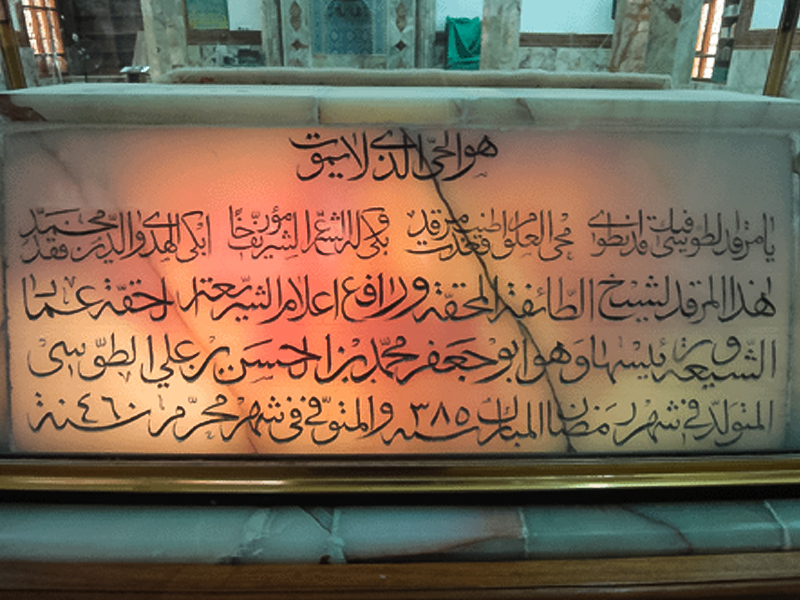 هو الحي الذي لا يموت
يا مرقد الطوسي فيك قد انطوى محيي العلوم فكنت اطيب مرقد وبكى له الشرع الشريف مؤرخًا ابكى الهدى والدين فقد محمد
هذا المرقد لشيخ الطائفة المحقة ورافع اعلام الشريعة الحقة عماد
الشيعة ورئيسها وهو ابو جعفر محمد بن الحسن بن علي الطوسي
المتولد في شهر رمضان المبارك سنه ٣٨٥ والمتوفى في شهر محرم سنة ٤٦٠